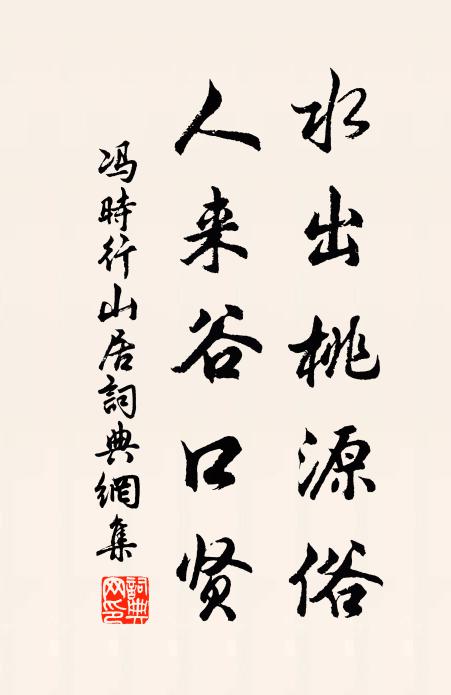 水出桃源俗
人来谷口贤
冯時行山居詞典網集
詞典
网印